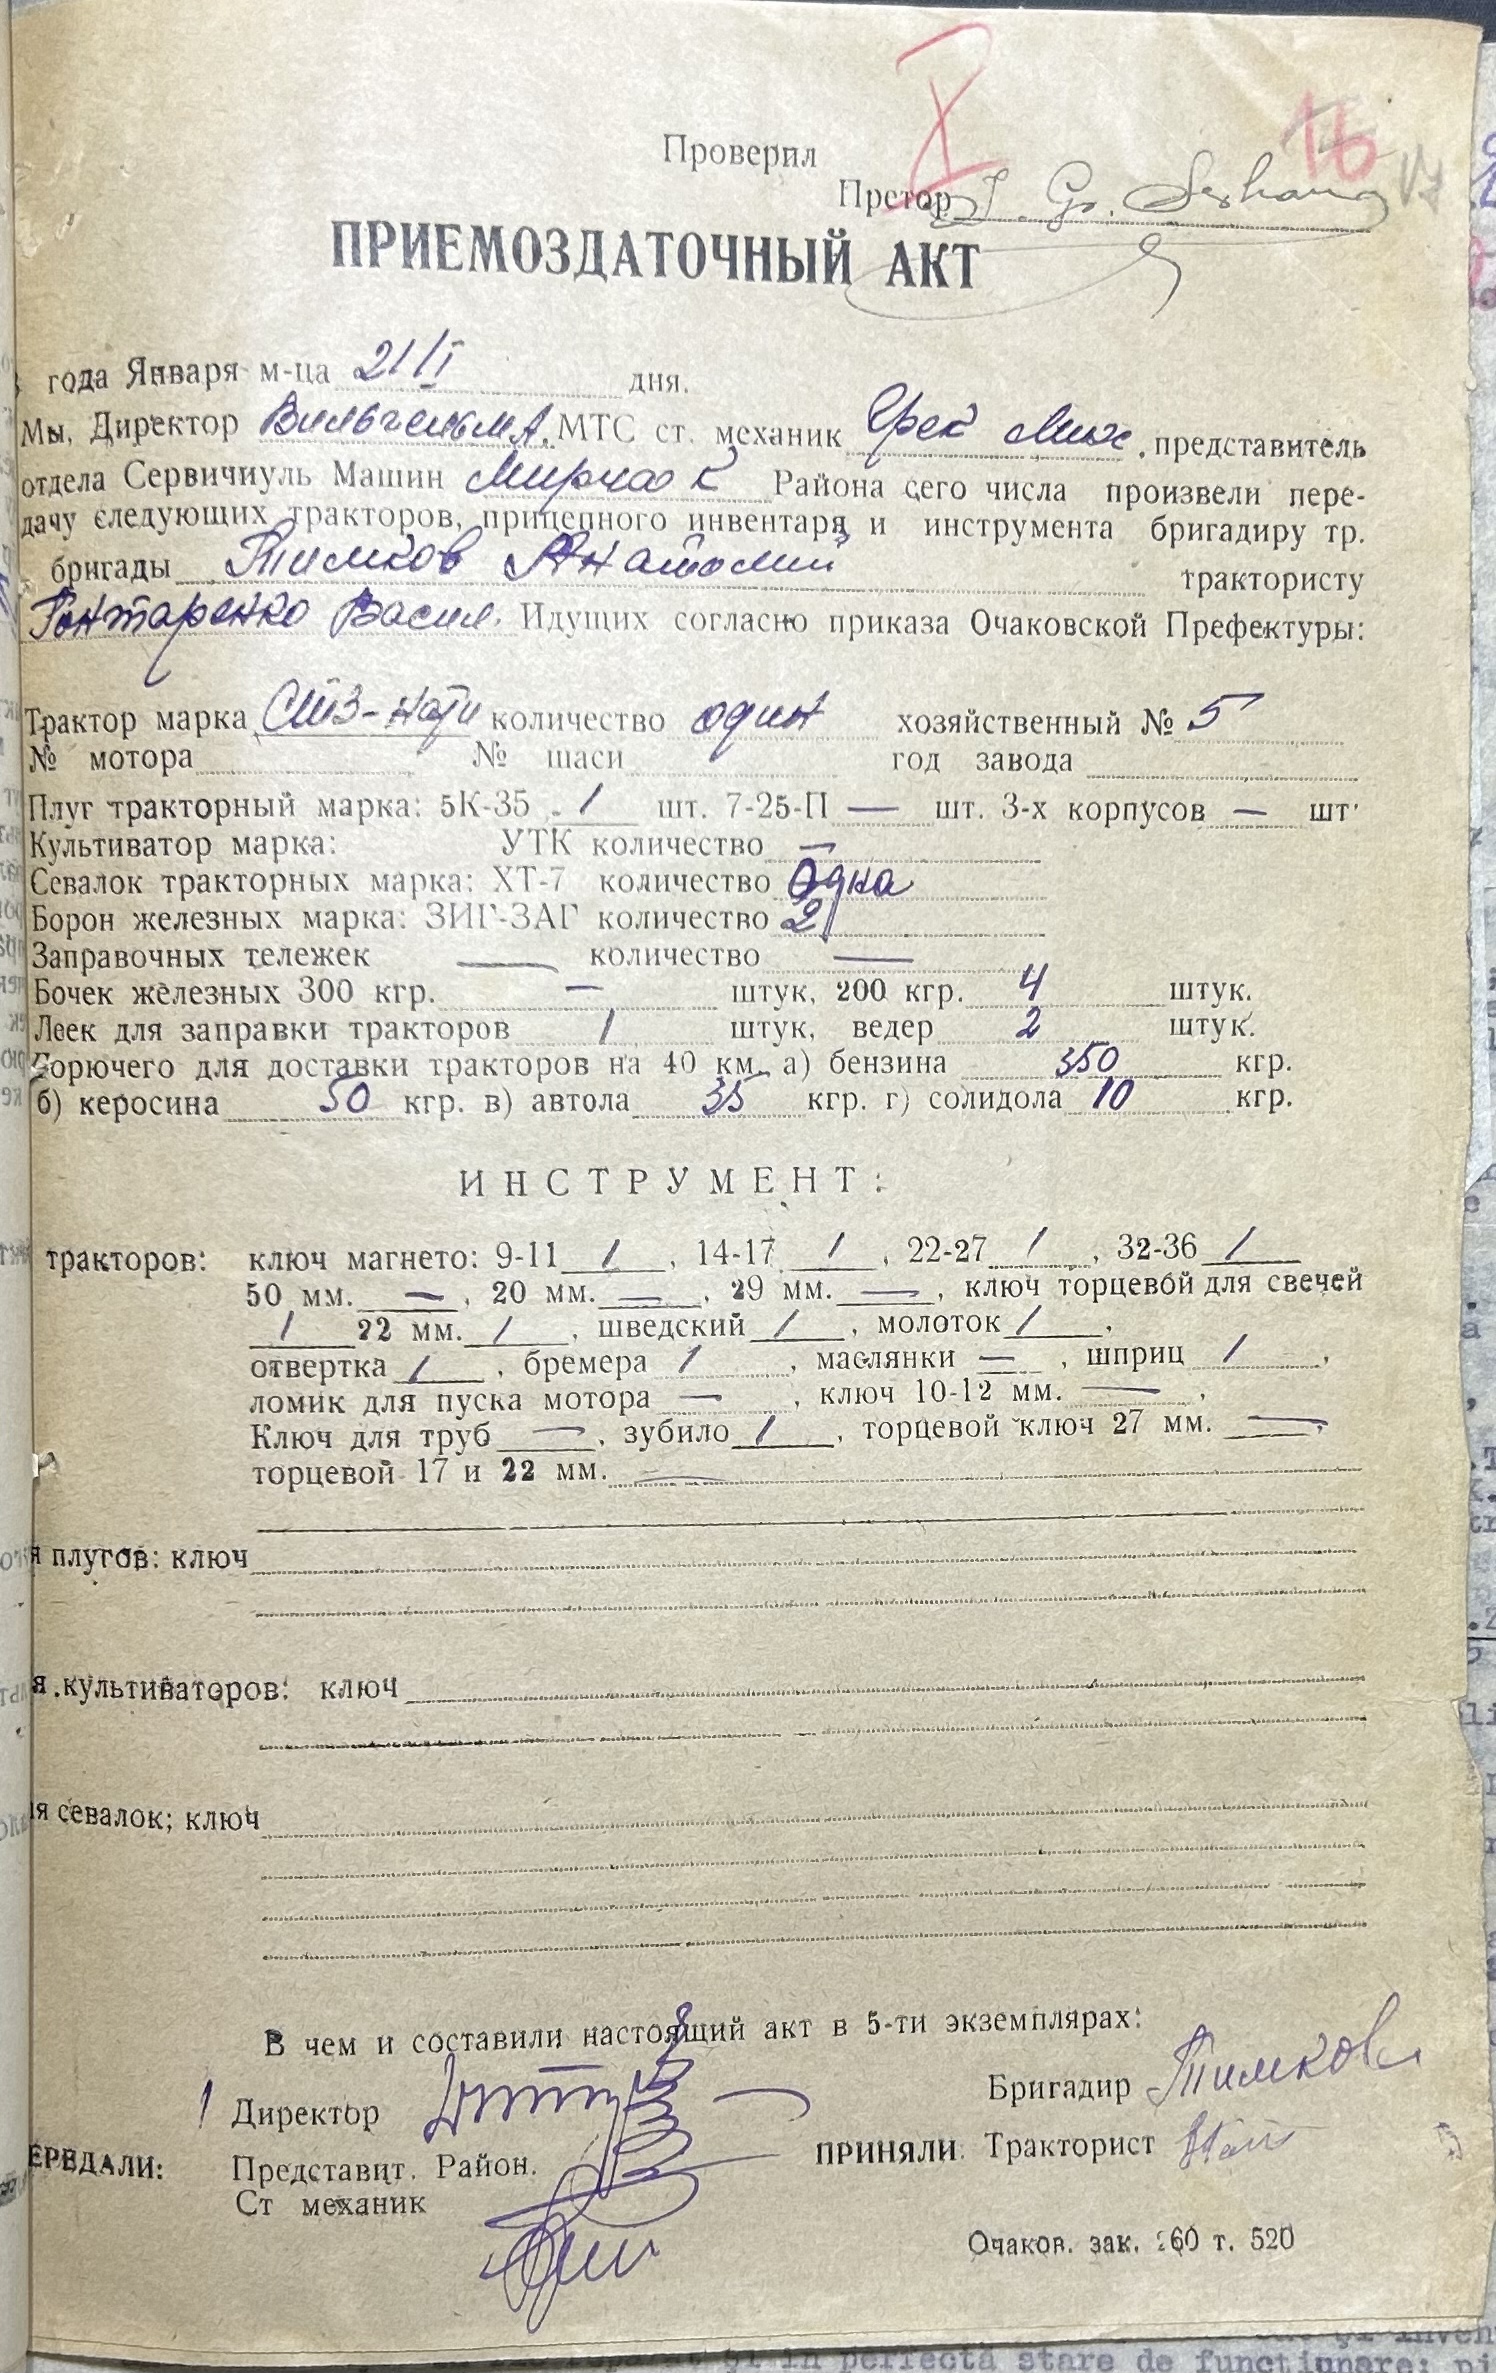 I
16
17
Проверил
Претор I. Gr.
ПРИЕМОЗДАТОЧНЫЙ АКТ
года Января м-ца 21/I дня.
Мы, Директор Вильгельм А. МТС ст. механик Грек Мих , представитель
отдела Сервичиуль Машин Мирча К Района сего числа произвели пере-
дачу следующих тракторов, прицепного инвентаря и инструмента бригадиру тр.
бригады Тимков Анатолий трактористу
Гонтаренко Васил. Идущих согласно приказа Очаковской Префектуры:
Трактор марка СТЗ-Нати количество один хозяйственный № 5
№ мотора № шаси год завода
Плуг тракторный марка: 5К-35 1 шт. 7-25-П — шт. 3-х корпусов — шт.
Культиватор марка: УТК количество —
Севалок тракторных марка: ХТ-7 количество Одна
Борон железных марка: ЗИГ-ЗАГ количество 2
Заправочных тележек — количество —
Бочек железных 300 кгр. — штук, 200 кгр. 4 штук.
Леек для заправки тракторов 1 штук, ведер 2 штук.
Горючего для доставки тракторов на 40 км. а) бензина 350 кгр.
б) керосина 50 кгр. в) автола 35 кгр. г) солидола 10 кгр.
ИНСТРУМЕНТ:
тракторов: ключ магнето: 9-11 1 , 14-17 1 , 22-27 1 , 32-36 1
50 мм. — , 20 мм. — , 29 мм. — , ключ торцевой для свечей
1 22 мм. 1 , шведский 1 , молоток 1 ,
отвертка 1 , бремера 1 , маслянки — , шприц 1 ,
ломик для пуска мотора — , ключ 10-12 мм. — ,
Ключ для труб — , зубило 1 , торцевой ключ 27 мм. — ,
торцевой 17 и 22 мм. —
я плугов: ключ
я культиваторов: ключ
ля севалок; ключ
В чем и составили настоящий акт в 5-ти экземплярах:
1 Директор
Бригадир Тимков
ЕРЕДАЛИ: Представит. Район.
ПРИНЯЛИ: Тракторист
Ст механик
Очаков. зак. 260 т. 520
in perfectă stare de funcţiunare; pl